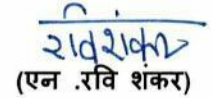 रविशंकर
(एन .रवि शंकर)